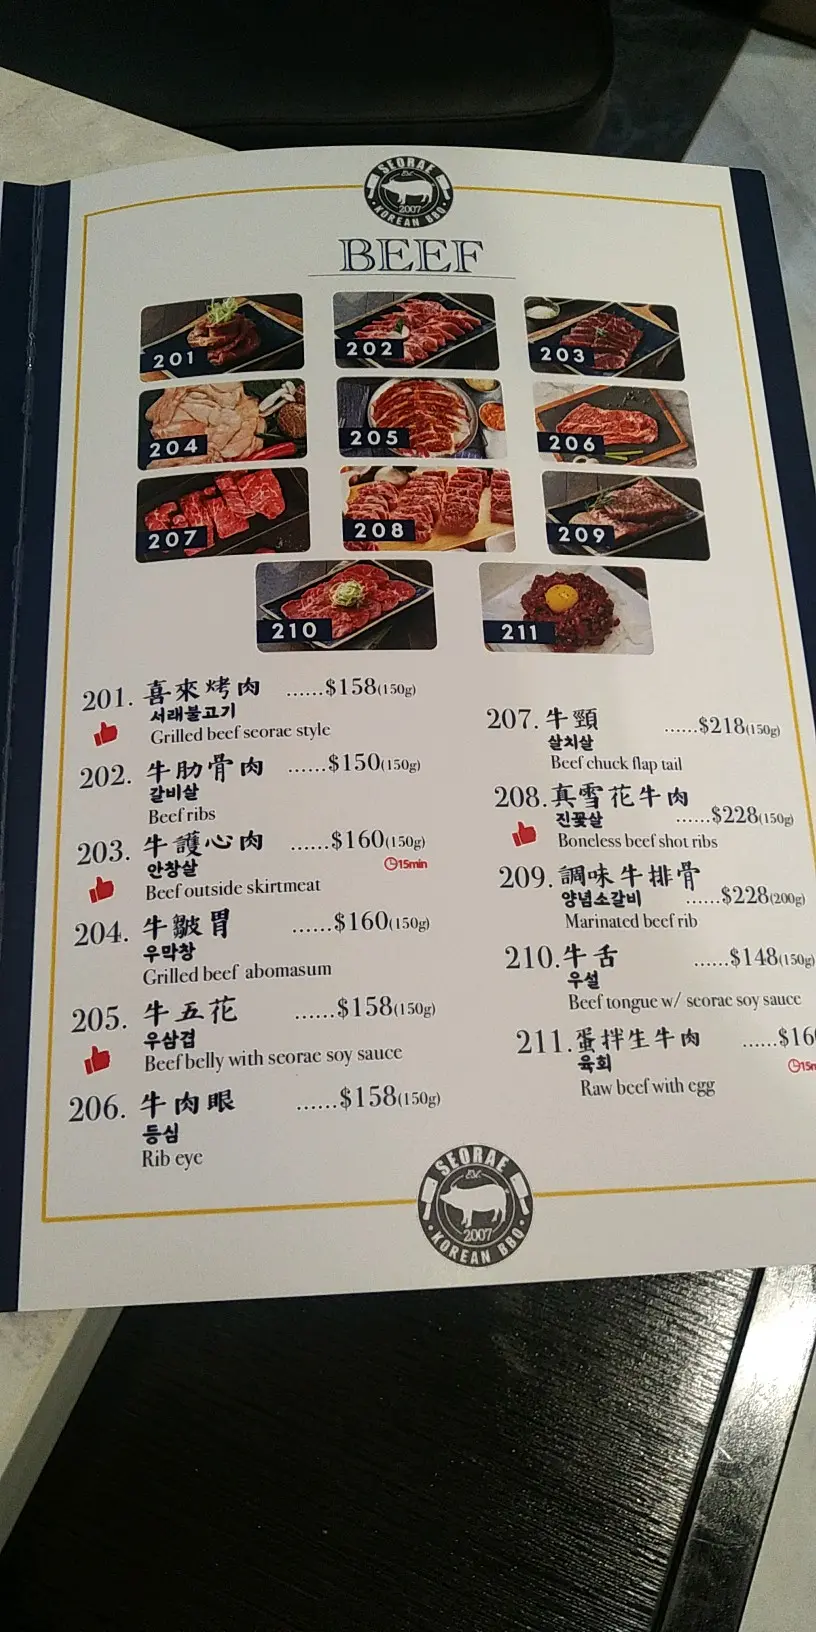 SEORAE
Est.
2007
KOREAN BBQ
BEEF
201
202
203
204
205
206
207
208
209
210
211
201. 喜來烤肉 ......$158(150g)
서래불고기
Grilled beef seorae style
202. 牛肋骨肉 ......$150(150g)
갈비살
Beef ribs
203. 牛護心肉 ......$160(150g)
안창살 15min
Beef outside skirtmeat
204. 牛皺胃 ......$160(150g)
우막창
Grilled beef abomasum
205. 牛五花 ......$158(150g)
우삼겹
Beef belly with seorae soy sauce
206. 牛肉眼 ......$158(150g)
등심
Rib eye
207. 牛頸 ......$218(150g)
살치살
Beef chuck flap tail
208. 真雪花牛肉
진꽃살 ......$228(150g)
Boneless beef shot ribs
209. 調味牛排骨
양념소갈비 ......$228(200g)
Marinated beef rib
210. 牛舌 ......$148(150g)
우설
Beef tongue w/ seorae soy sauce
211. 蛋拌生牛肉 ......$16
육회 15m
Raw beef with egg
SEORAE
Est.
2007
KOREAN BBQ